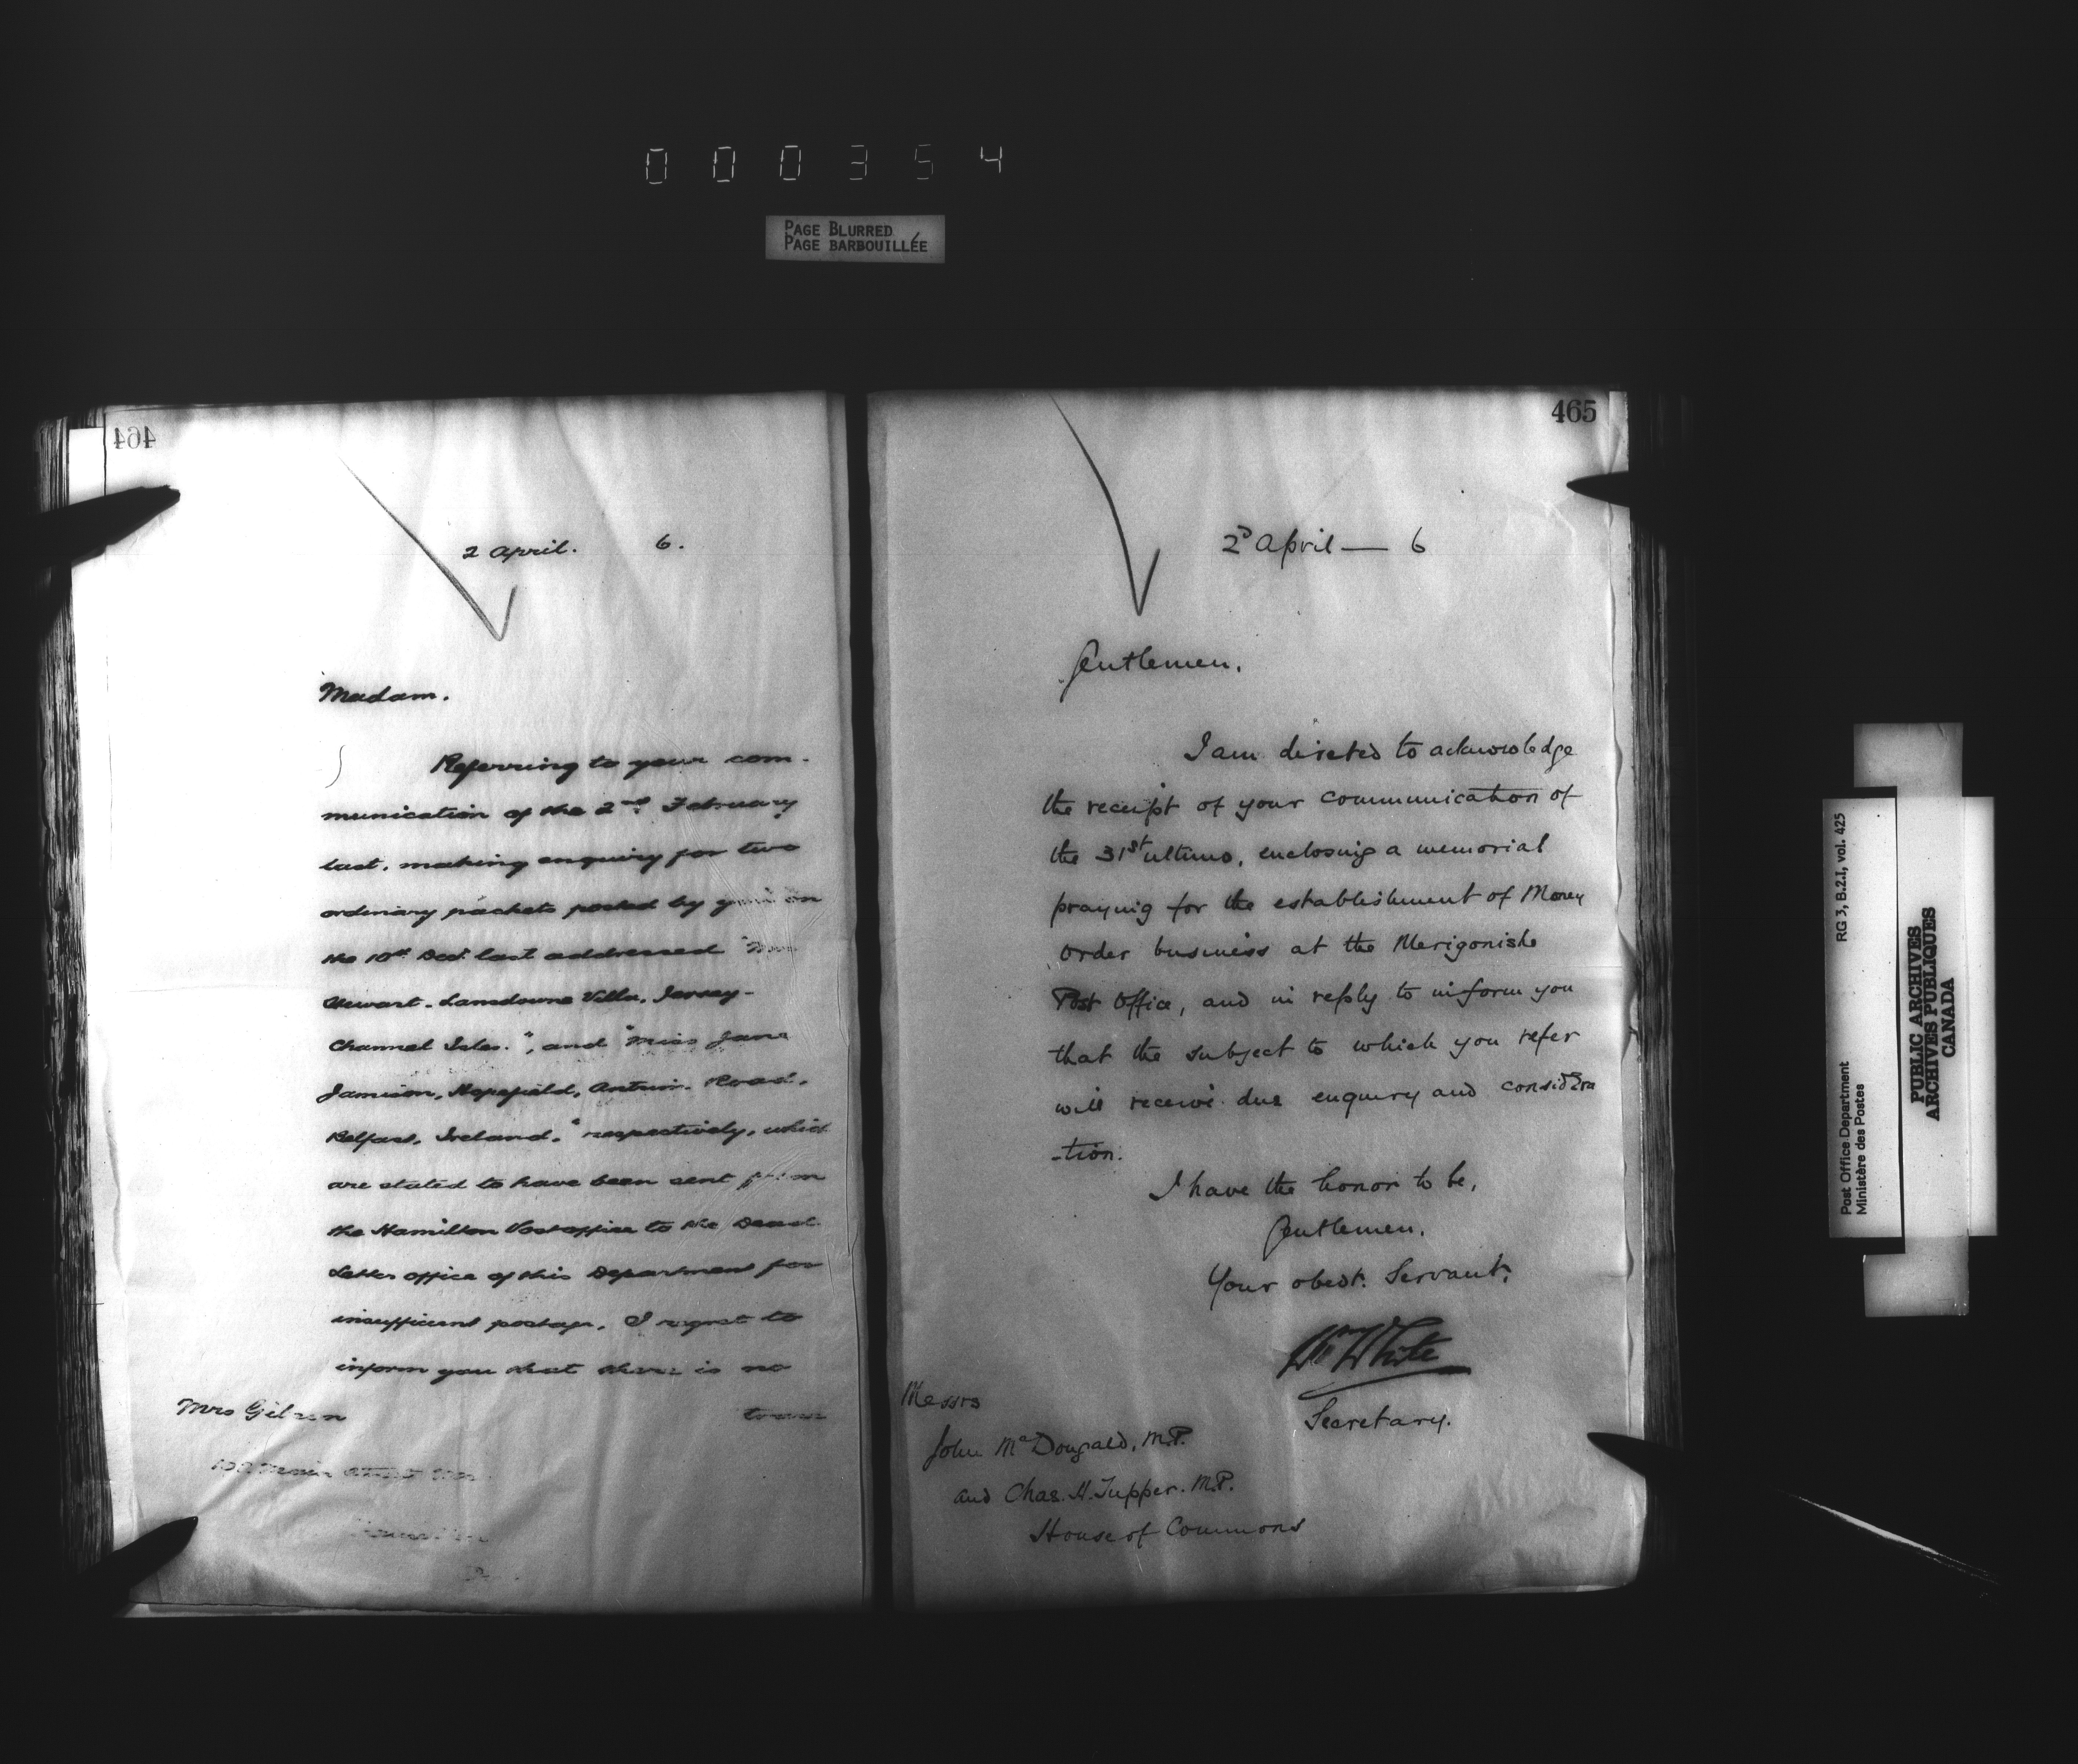 000354
PAGE BLURRED
PAGE BARBOUILLÉE
464
2 April. 6.
Madam.
Referring to your com-
munication of the 2nd February
last, making enquiry for two
ordinary packets posted by you on
the 10th Dec. last addressed
Stewart. Lansdowne Villa, Jersey-
Channel Isles.", and "Miss Jane
Jamison, Hopefield, Antrim Road,
Belfast, Ireland," respectively, which
are stated to have been sent from
the Hamilton Post office to the Dead
Letter office of this Department for
insufficient postage, I regret to
inform you that there is no
Mrs
465
2d April — 6
Gentlemen.
I am directed to acknowledge
the receipt of your communication of
the 31st ultimo, enclosing a memorial
praying for the establishment of Money
Order business at the Merigonishe
Post Office, and in reply to inform you
that the subject to which you refer
will receive due enquiry and considera
-tion.
I have the honor to be,
Gentlemen.
Your obedt. Servant,
Wm White
Secretary.
Messrs
John McDougald, M.P.
and Chas. H. Tupper. M.P.
House of Commons
RG 3, B.2.I, vol. 425
Post Office Department
Ministère des Postes
PUBLIC ARCHIVES
ARCHIVES PUBLIQUES
CANADA